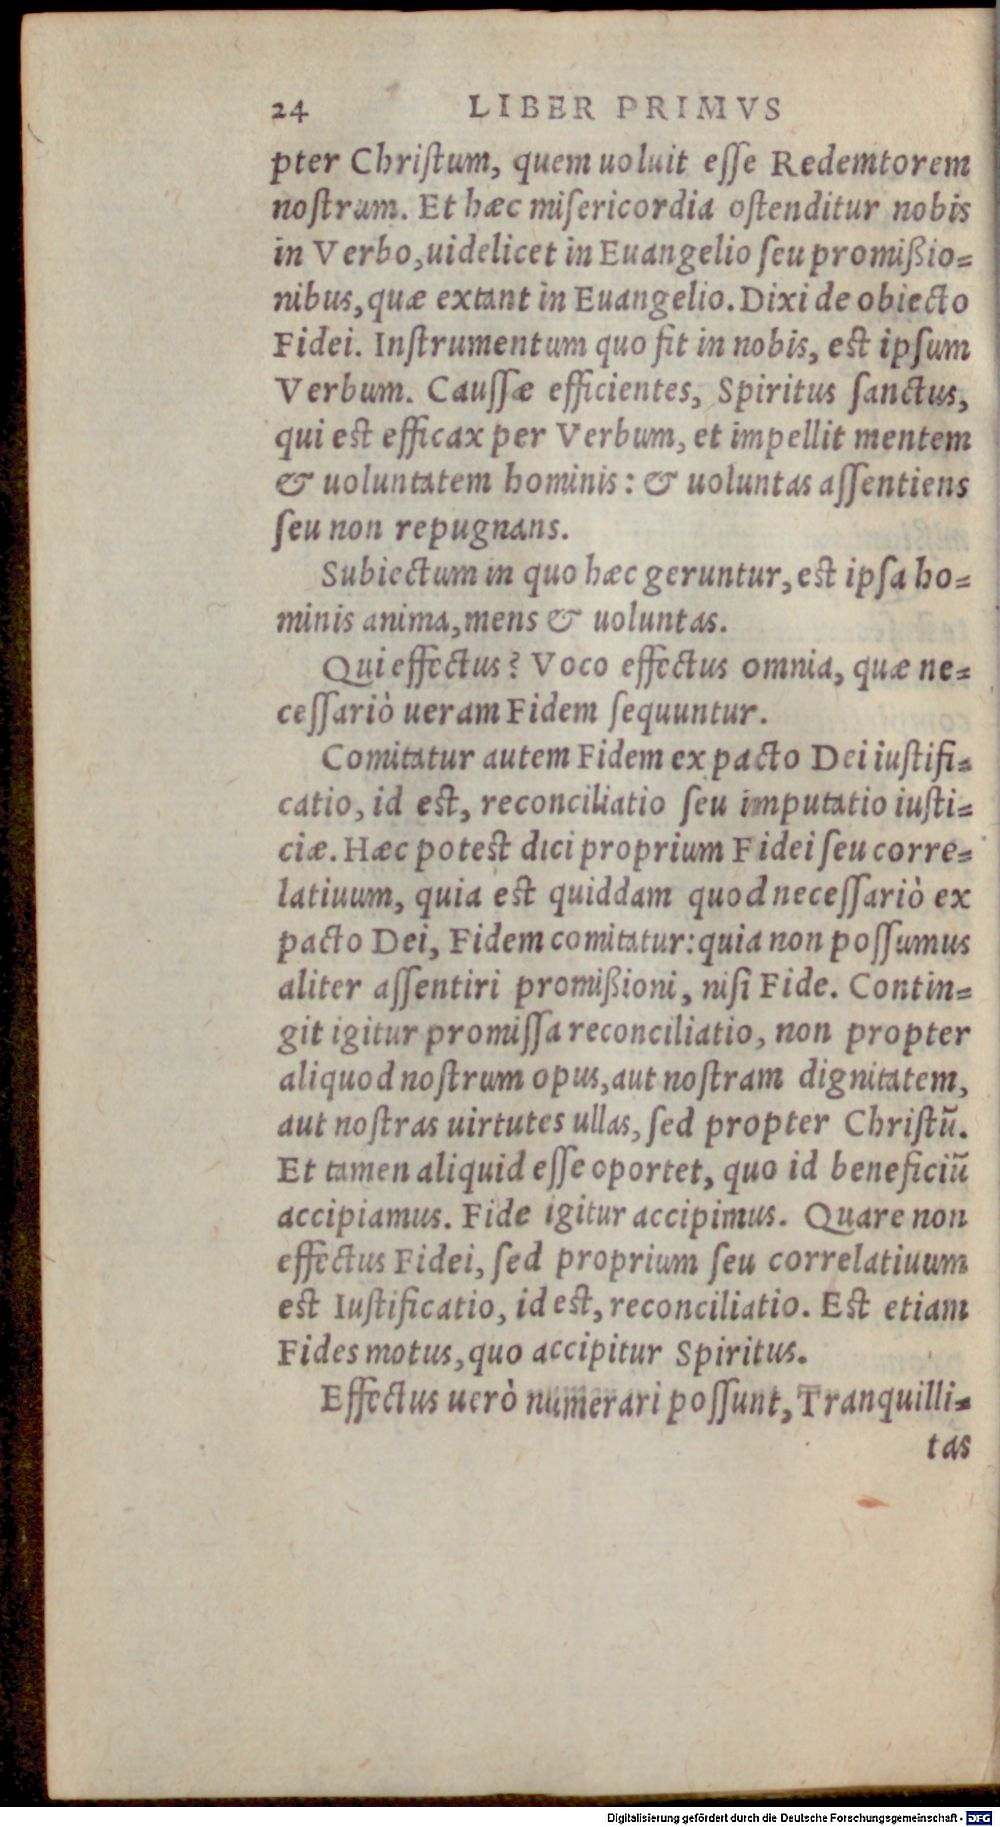 24 LIBER PRIMVS
pter Chriſtum, quem uoluit eſſe Redemtorem
noſtrum. Et hæc miſericordia oſtenditur nobis
in Verbo, uidelicet in Euangelio ſeu promißio-
nibus, quæ extant in Euangelio. Dixi de obiecto
Fidei. Inſtrumentum quo fit in nobis, est ipſum
Verbum. Cauſſæ efficientes, Spiritus ſanctus,
qui est efficax per Verbum, et impellit mentem
& uoluntatem hominis: & uoluntas aſſentiens
ſeu non repugnans.
Subiectum in quo hæc geruntur, est ipſa ho-
minis anima, mens & uoluntas.
Qui effectus? Voco effectus omnia, quæ ne-
ceſſariò ueram Fidem ſequuntur.
Comitatur autem Fidem ex pacto Dei iuſtifi-
catio, id est, reconciliatio ſeu imputatio iuſti-
ciæ. Hæc potest dici proprium Fidei ſeu corre-
latiuum, quia est quiddam quod neceſſariò ex
pacto Dei, Fidem comitatur: quia non poſſumus
aliter aſſentiri promißioni, niſi Fide. Contin-
git igitur promiſſa reconciliatio, non propter
aliquod noſtrum opus, aut noſtram dignitatem,
aut noſtras uirtutes ullas, ſed propter Chriſtū.
Et tamen aliquid eſſe oportet, quo id beneficiū
accipiamus. Fide igitur accipimus. Quare non
effectus Fidei, ſed proprium ſeu correlatiuum
est Iuſtificatio, id est, reconciliatio. Est etiam
Fides motus, quo accipitur Spiritus.
Effectus uerò numerari poſſunt, Tranquilli-
tas
Digitalisierung gefördert durch die Deutsche Forschungsgemeinschaft - DFG